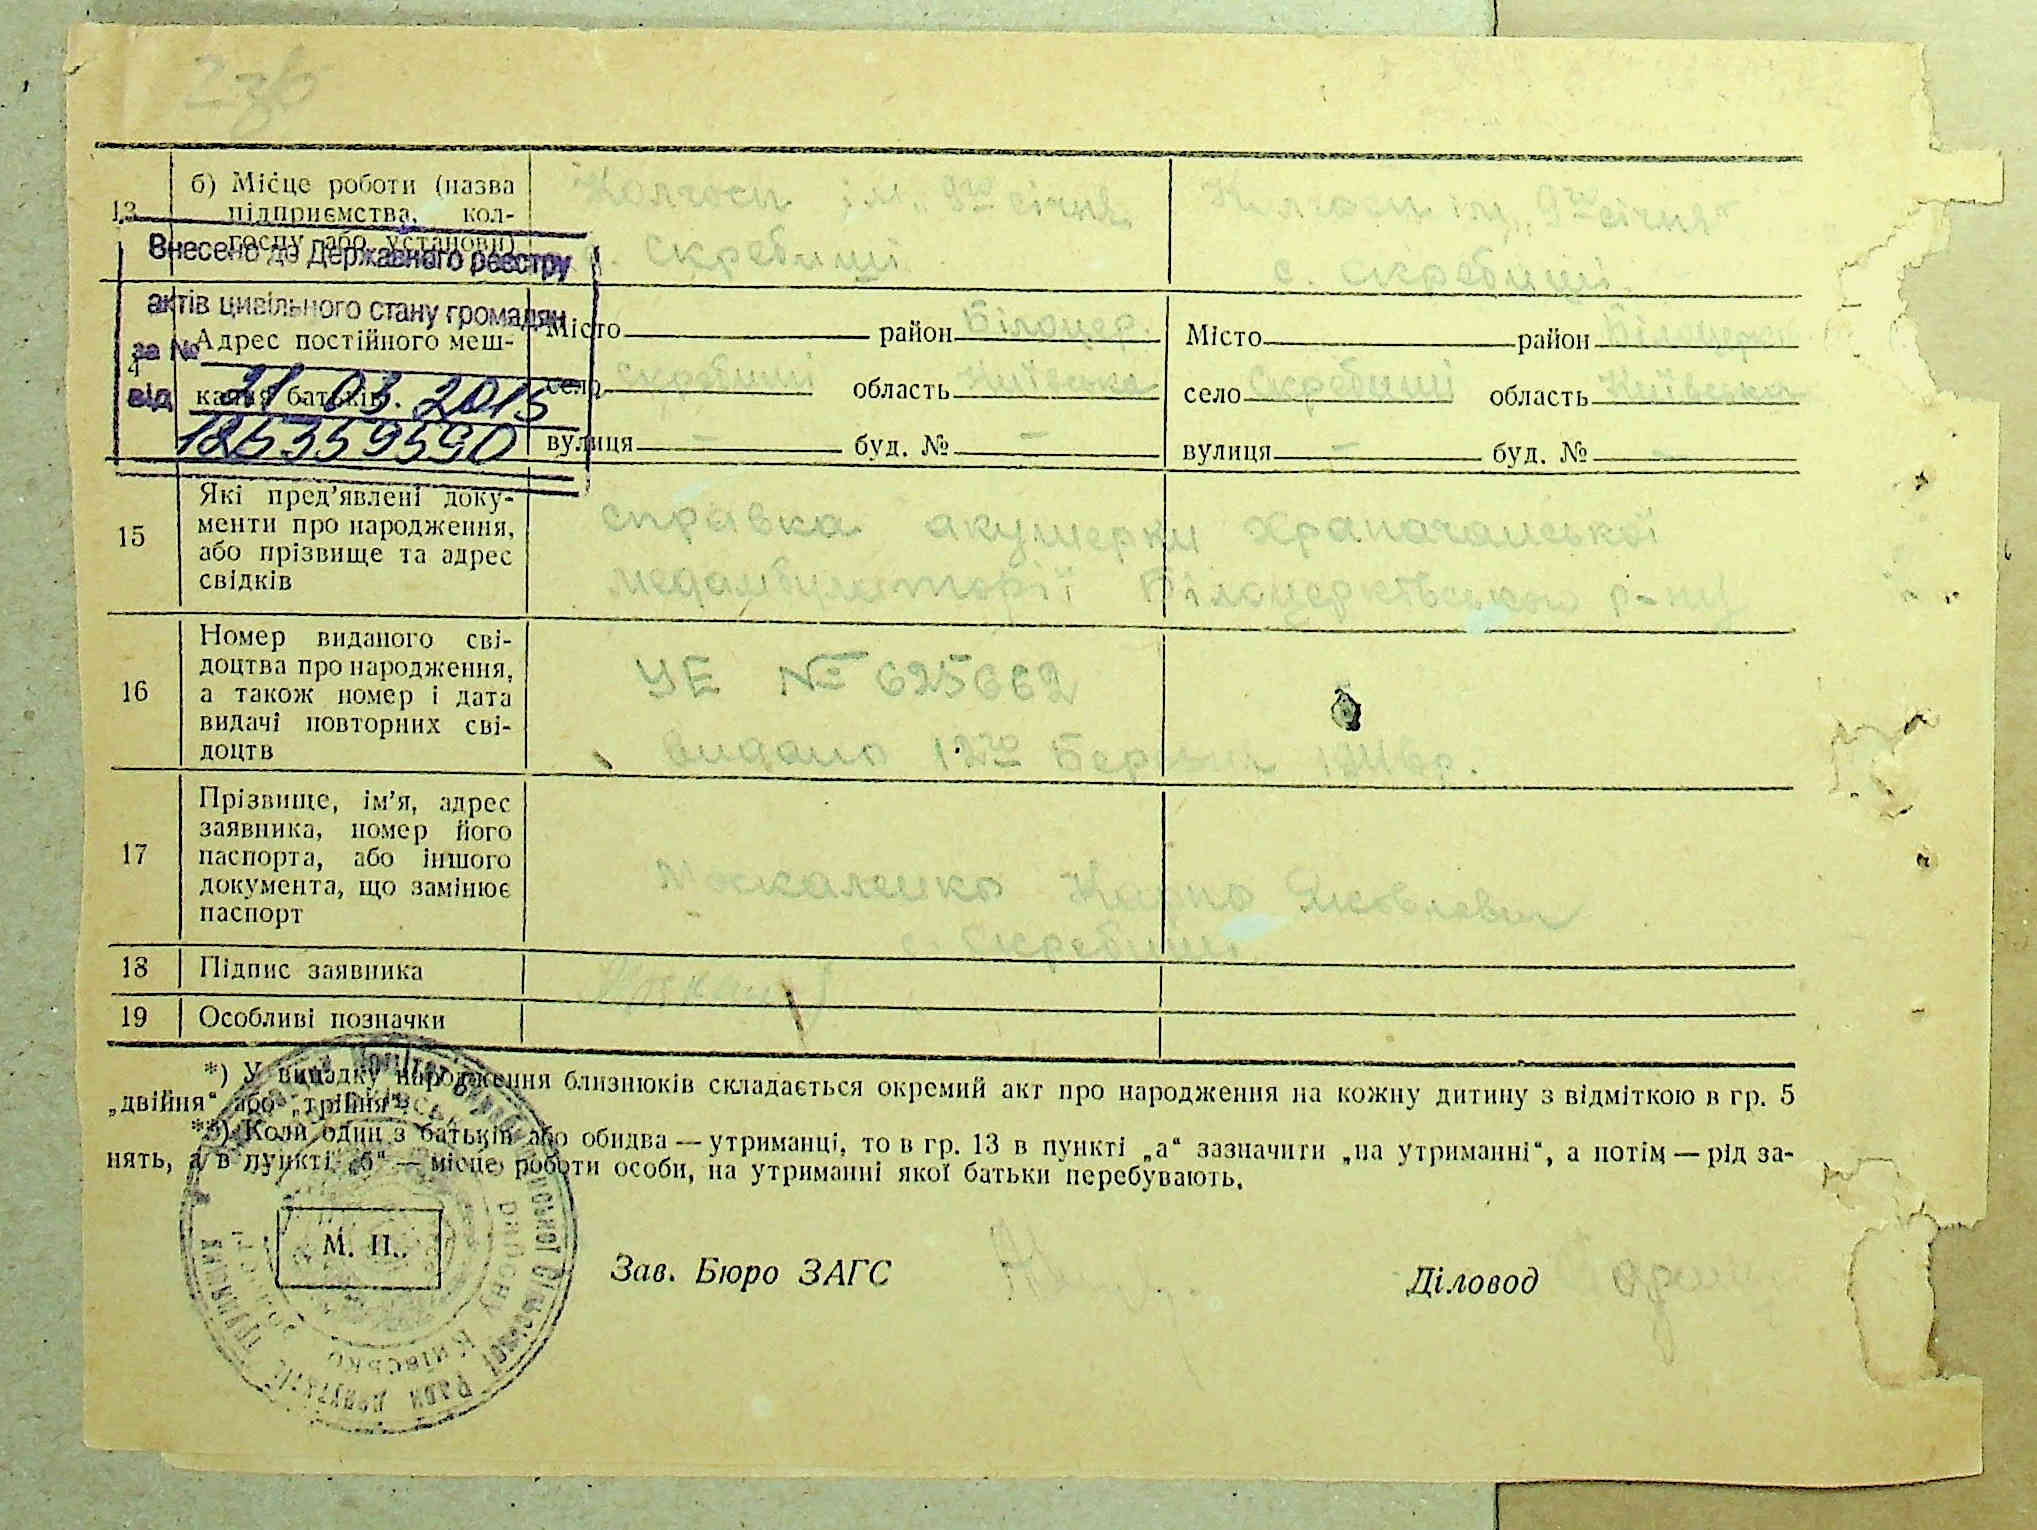 236
13
б) Місце роботи (назва
підприємства, кол-
госпу або установи)
Колгосп ім. „9го січня"
с. Скребиші
Колгосп ім. „9го січня"
с. Скребиші
Внесено до Державного реєстру
актів цивільного стану громадян
за №
від 21 03. 2015
185359590
Адрес постійного меш-
кання батьків.
Місто район Білоцер.
село Скребиші область Київська
вулиця – буд. № –
Місто район Білоцерк
село Скребиші область Київська
вулиця – буд. № –
15
Які пред'явлені доку-
менти про народження,
або прізвище та адрес
свідків
справка акушерки Храпачанської
медамбулаторії Білоцерківського р-ну
16
Номер виданого сві-
доцтва про народження,
а також номер і дата
видачі повторних сві-
доцтв
УЕ № 625662
видано 12го Березня 1946р.
17
Прізвище, ім'я, адрес
заявника, номер його
паспорта, або іншого
документа, що замінює
паспорт
Москаленко Яковлевич
с. Скребиші
18 Підпис заявника
19 Особливі позначки
*) У випадку народження близнюків складається окремий акт про народження на кожну дитину з відміткою в гр. 5
„двійня" або „трійня".
**) Коли один з батьків або обидва — утриманці, то в гр. 13 в пункті „а" зазначити „на утриманні", а потім — рід за-
нять, а в пункті „б" — місце роботи особи, на утриманні якої батьки перебувають.
М. П.
Зав. Бюро ЗАГС
Діловод